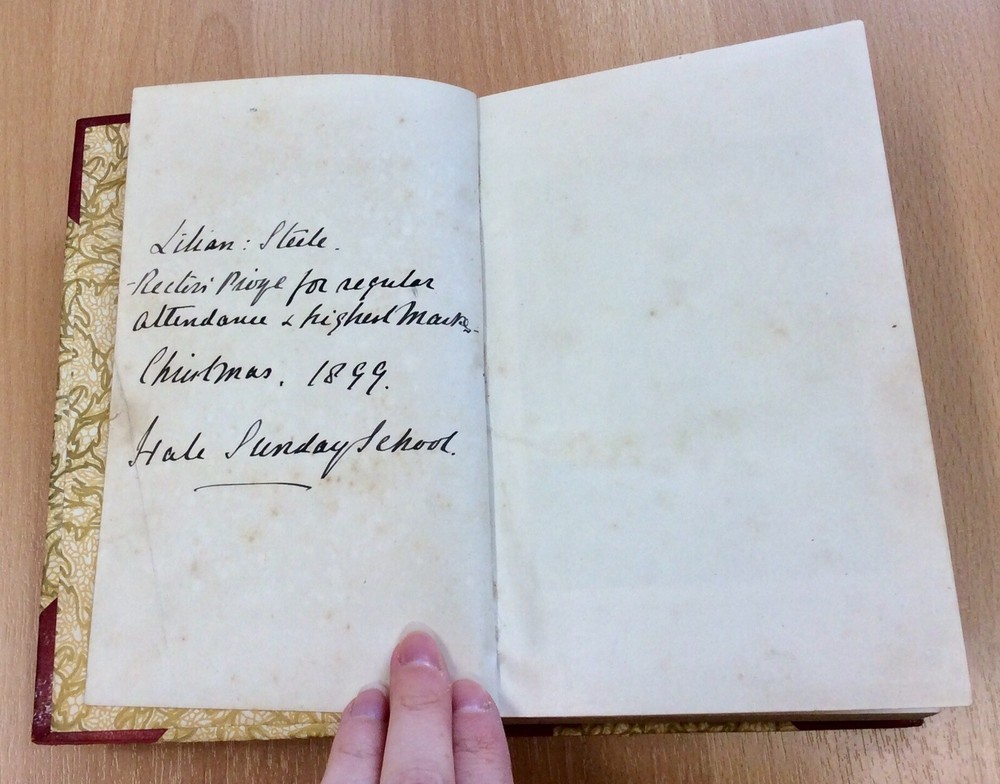 Lilian: Steele.
Rectors' Prize for regular
attendance & highest Marks
Christmas. 1899.
Hale Sunday School.